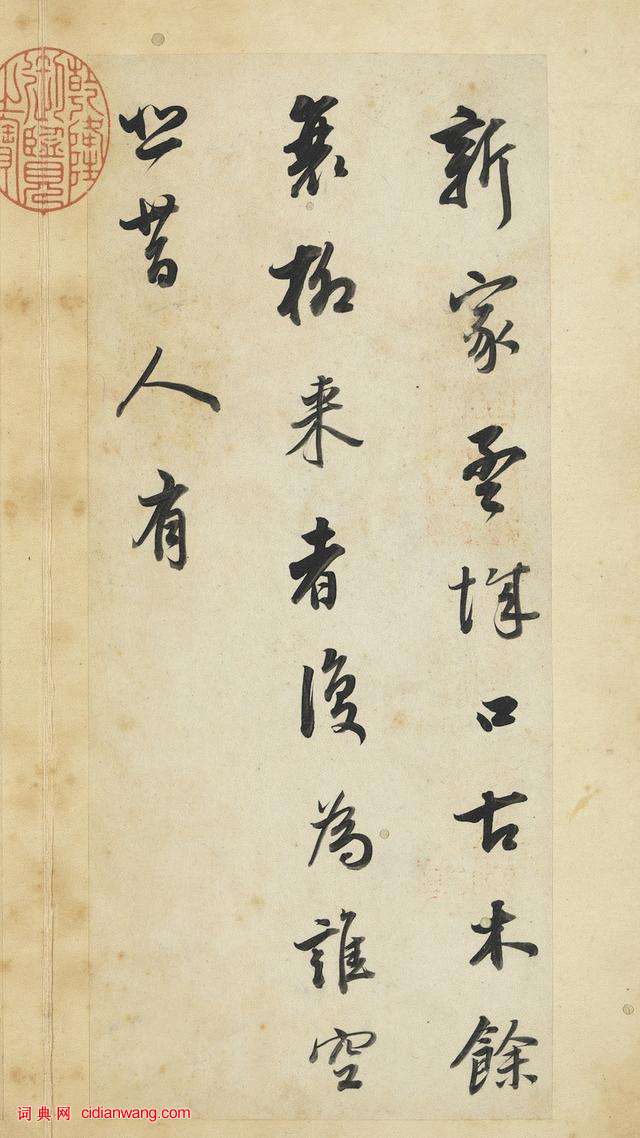 新家孟城口古木餘
衰柳来者復為誰空
悲昔人有
乾隆
御覽
之寶
词典网 cidianwang.com